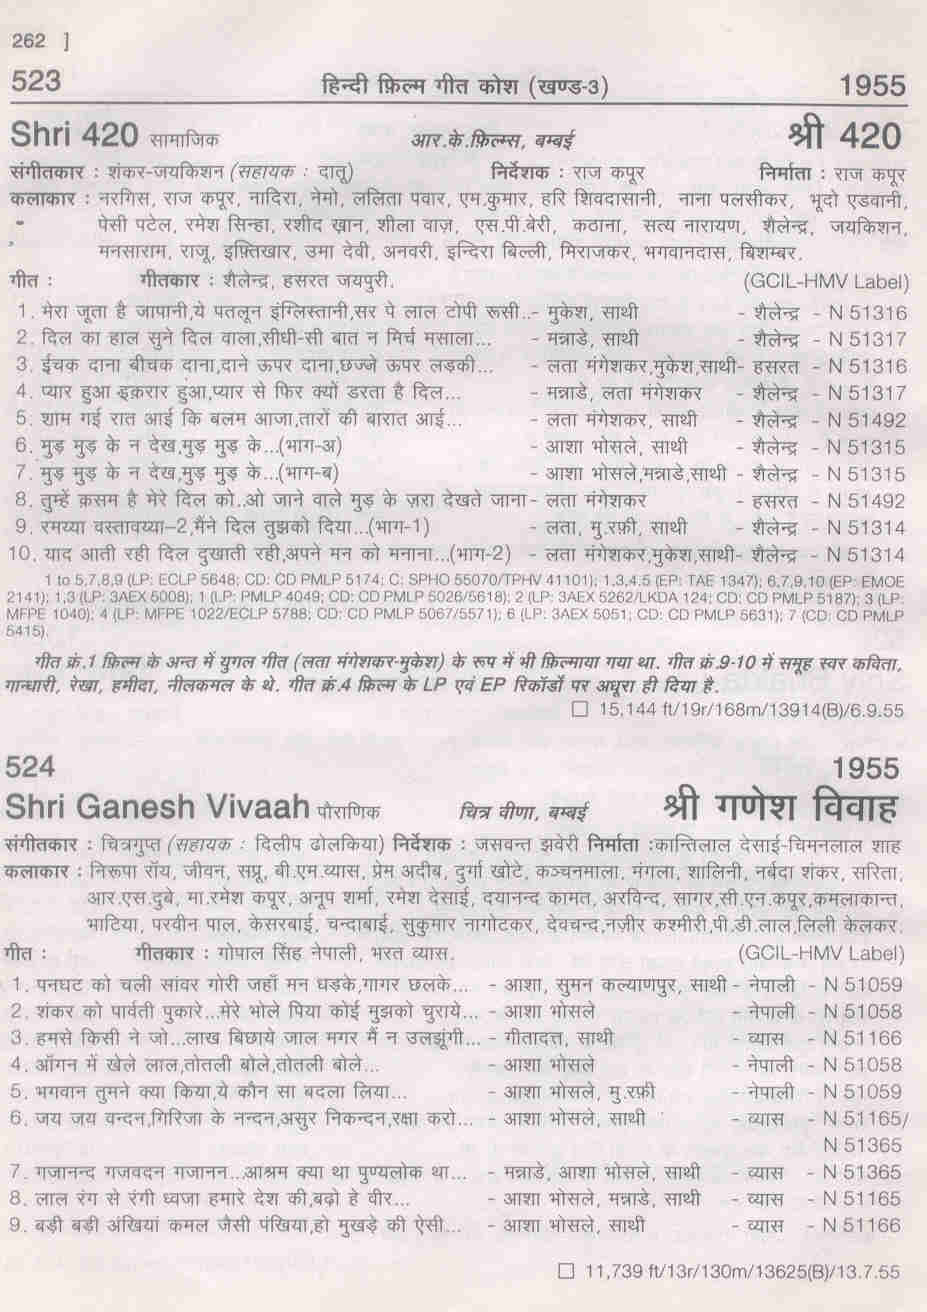 262 ]
523 हिन्दी फ़िल्म गीत कोश (खण्ड-3) 1955
Shri 420 सामाजिक आर.के.फ़िल्म्स, बम्बई श्री 420
संगीतकार : शंकर-जयकिशन (सहायक : दातू) निर्देशक : राज कपूर निर्माता : राज कपूर
कलाकार : नरगिस, राज कपूर, नादिरा, नेमो, ललिता पवार, एम.कुमार, हरि शिवदासानी, नाना पलसीकर, भूदो एडवानी,
पेसी पटेल, रमेश सिन्हा, रशीद ख़ान, शीला वाज़, एस.पी.बेरी, कठाना, सत्य नारायण, शैलेन्द्र, जयकिशन,
मनसाराम, राजू, इफ़्तिखार, उमा देवी, अनवरी, इन्दिरा बिल्ली, मिराजकर, भगवानदास, बिशम्बर.
गीत : गीतकार : शैलेन्द्र, हसरत जयपुरी. (GCIL-HMV Label)
1. मेरा जूता है जापानी,ये पतलून इंग्लिस्तानी,सर पे लाल टोपी रूसी..- मुकेश, साथी - शैलेन्द्र - N 51316
2. दिल का हाल सुने दिल वाला,सीधी-सी बात न मिर्च मसाला... - मन्नाडे, साथी - शैलेन्द्र - N 51317
3. ईचक दाना बीचक दाना,दाने ऊपर दाना,छज्जे ऊपर लड़की... - लता मंगेशकर,मुकेश,साथी- हसरत - N 51316
4. प्यार हुआ इक़रार हुआ,प्यार से फिर क्यों डरता है दिल... - मन्नाडे, लता मंगेशकर - शैलेन्द्र - N 51317
5. शाम गई रात आई कि बलम आजा,तारों की बारात आई... - लता मंगेशकर, साथी - शैलेन्द्र - N 51492
6. मुड़ मुड़ के न देख,मुड़ मुड़ के...(भाग-अ) - आशा भोसले, साथी - शैलेन्द्र - N 51315
7. मुड़ मुड़ के न देख,मुड़ मुड़ के...(भाग-ब) - आशा भोसले,मन्नाडे,साथी - शैलेन्द्र - N 51315
8. तुम्हें क़सम है मेरे दिल को..ओ जाने वाले मुड़ के ज़रा देखते जाना- लता मंगेशकर - हसरत - N 51492
9. रमय्या वस्तावय्या–2,मैंने दिल तुझको दिया...(भाग-1) - लता, मु.रफ़ी, साथी - शैलेन्द्र - N 51314
10. याद आती रही दिल दुखाती रही,अपने मन को मनाना...(भाग-2) - लता मंगेशकर,मुकेश,साथी- शैलेन्द्र - N 51314
1 to 5,7,8,9 (LP: ECLP 5648; CD: CD PMLP 5174; C: SPHO 55070/TPHV 41101); 1,3,4,5 (EP: TAE 1347); 6,7,9,10 (EP: EMOE
2141); 1,3 (LP: 3AEX 5008); 1 (LP: PMLP 4049; CD: CD PMLP 5026/5618); 2 (LP: 3AEX 5262/LKDA 124; CD: CD PMLP 5187); 3 (LP:
MFPE 1040); 4 (LP: MFPE 1022/ECLP 5788; CD: CD PMLP 5067/5571); 6 (LP: 3AEX 5051; CD: CD PMLP 5631); 7 (CD: CD PMLP
5415).
गीत क्रं.1 फ़िल्म के अन्त में युगल गीत (लता मंगेशकर-मुकेश) के रूप में भी फ़िल्माया गया था. गीत क्रं.9-10 में समूह स्वर कविता,
गान्धारी, रेखा, हमीदा, नीलकमल के थे. गीत क्रं.4 फ़िल्म के LP एवं EP रिकॉर्डों पर अधूरा ही दिया है.
☐ 15,144 ft/19r/168m/13914(B)/6.9.55
524 1955
Shri Ganesh Vivaah पौराणिक चित्र वीणा, बम्बई श्री गणेश विवाह
संगीतकार : चित्रगुप्त (सहायक : दिलीप ढोलकिया) निर्देशक : जसवन्त झवेरी निर्माता :कान्तिलाल देसाई-चिमनलाल शाह
कलाकार : निरूपा रॉय, जीवन, सप्रू, बी.एम.व्यास, प्रेम अदीब, दुर्गा खोटे, कञ्चनमाला, मंगला, शालिनी, नर्बदा शंकर, सरिता,
आर.एस.दुबे, मा.रमेश कपूर, अनूप शर्मा, रमेश देसाई, दयानन्द कामत, अरविन्द, सागर,सी.एन.कपूर,कमलाकान्त,
भाटिया, परवीन पाल, केसरबाई, चन्दाबाई, सुकुमार नागोटकर, देवचन्द,नज़ीर कश्मीरी,पी.डी.लाल,लिली केलकर.
गीत : गीतकार : गोपाल सिंह नेपाली, भरत व्यास. (GCIL-HMV Label)
1. पनघट को चली सांवर गोरी जहाँ मन धड़के,गागर छलके... - आशा, सुमन कल्याणपुर, साथी - नेपाली - N 51059
2. शंकर को पार्वती पुकारे...मेरे भोले पिया कोई मुझको चुराये... - आशा भोसले - नेपाली - N 51058
3. हमसे किसी ने जो...लाख बिछाये जाल मगर मैं न उलझूंगी... - गीतादत्त, साथी - व्यास - N 51166
4. आँगन में खेले लाल,तोतली बोले,तोतली बोले... - आशा भोसले - नेपाली - N 51058
5. भगवान तुमने क्या किया,ये कौन सा बदला लिया... - आशा भोसले, मु.रफ़ी - नेपाली - N 51059
6. जय जय वन्दन,गिरिजा के नन्दन,असुर निकन्दन,रक्षा करो... - आशा भोसले, साथी - व्यास - N 51165/
N 51365
7. गजानन्द गजवदन गजानन...आश्रम क्या था पुण्यलोक था... - मन्नाडे, आशा भोसले, साथी - व्यास - N 51365
8. लाल रंग से रंगी ध्वजा हमारे देश की,बढ़ो हे वीर... - आशा भोसले, मन्नाडे, साथी - व्यास - N 51165
9. बड़ी बड़ी अंखियां कमल जैसी पंखिया,हो मुखड़े की ऐसी... - आशा भोसले, साथी - व्यास - N 51166
☐ 11,739 ft/13r/130m/13625(B)/13.7.55